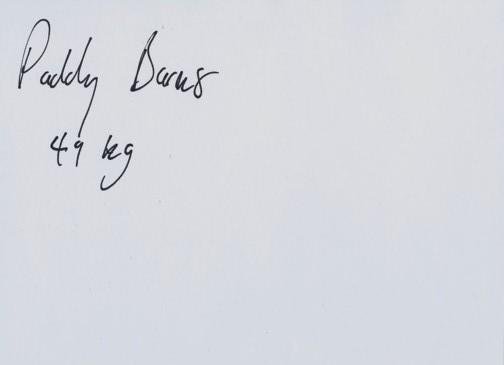 Paddy Barnes
49 kg